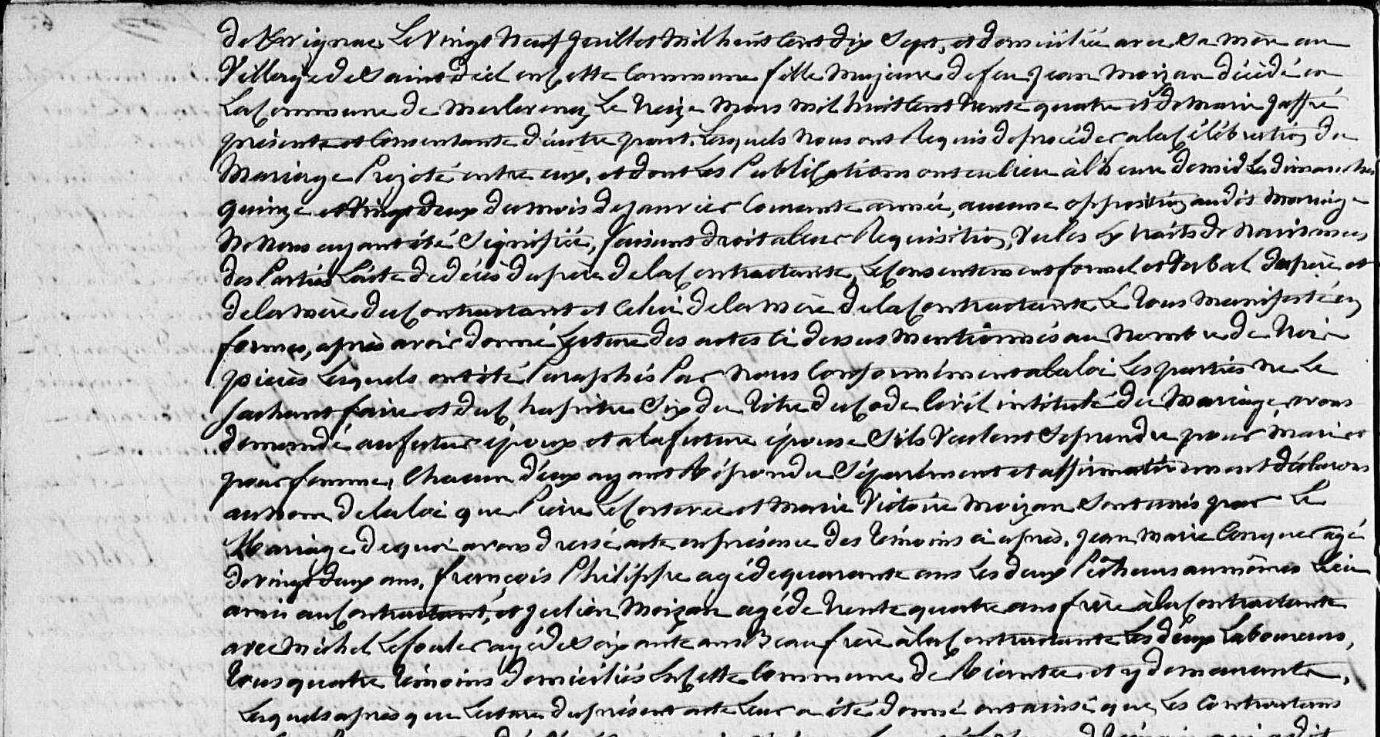 de Kervignac Le Vingt Neuf Juillet Mil huit Cent dix Sept, et domiciliée avec Sa Mère au
Village de Saint Diel en Cette Commune fille Majeure de feu Jean Moizan décédé en
La Commune de Merlevenez Le treize Mars Mil huit Cent trente quatre et de Marie Jaffré
présente et Consentante d'autre part, Lesquels Nous ont Requis de procéder a la Célébration du
Mariage Projeté entre eux, et dont Les Publications ont eu lieu à l'heure de midi Les dimanches
quinze et Vingt deux du mois de Janvier Courante année, aucune opposition audit Mariage
Ne Nous ayant été Signifiée, faisant droit a leur Requisition, Vu Les Extraits de Naissances
des Parties L'acte de décès du père de la Contractante, Le Consentement formel et Verbal du père et
de la mère du Contractant et Celui de la mère de la Contractante Le tous Manifesté en
formes, après avoir donné Lecture des actes Ci dessus Mentionnés au Nombre de trois
pièces Lesquels ont été Paraphés Par Nous Conformément a la loi Les parties Ne Le
Sachant faire et du Chapitre Six du Titre du Code Civil intitulé du Mariage, avons
demandé au futur époux et a la future épouse S'ils Veulent Se prendre pour Mari et
pour femme, Chacun d'eux ayant Répondu Séparément et affirmativement déclarons
au nom de la loi que Pierre Le Corterec et Marie Victoire Moizan Sont unis par Le
Mariage de quoi avons dressé acte en présence des témoins ci après, Jean Marie Conquer agé
de vingt deux ans, François Philippe agé de quarante ans Les deux Pêcheurs au mêmes Lieu
amis au Contractant, et Julien Moizan agé de trente quatre ans frère à la Contractante
avec Michel Le fouler agé de Soixante ans Beau frère à la Contractante Les deux Laboureurs,
tous quatre témoins domiciliés En Cette Commune de Riantec et y demeurante,
Lesquels après que Lecture du présent acte Leur a été donné ont ainsi que Les Contractans